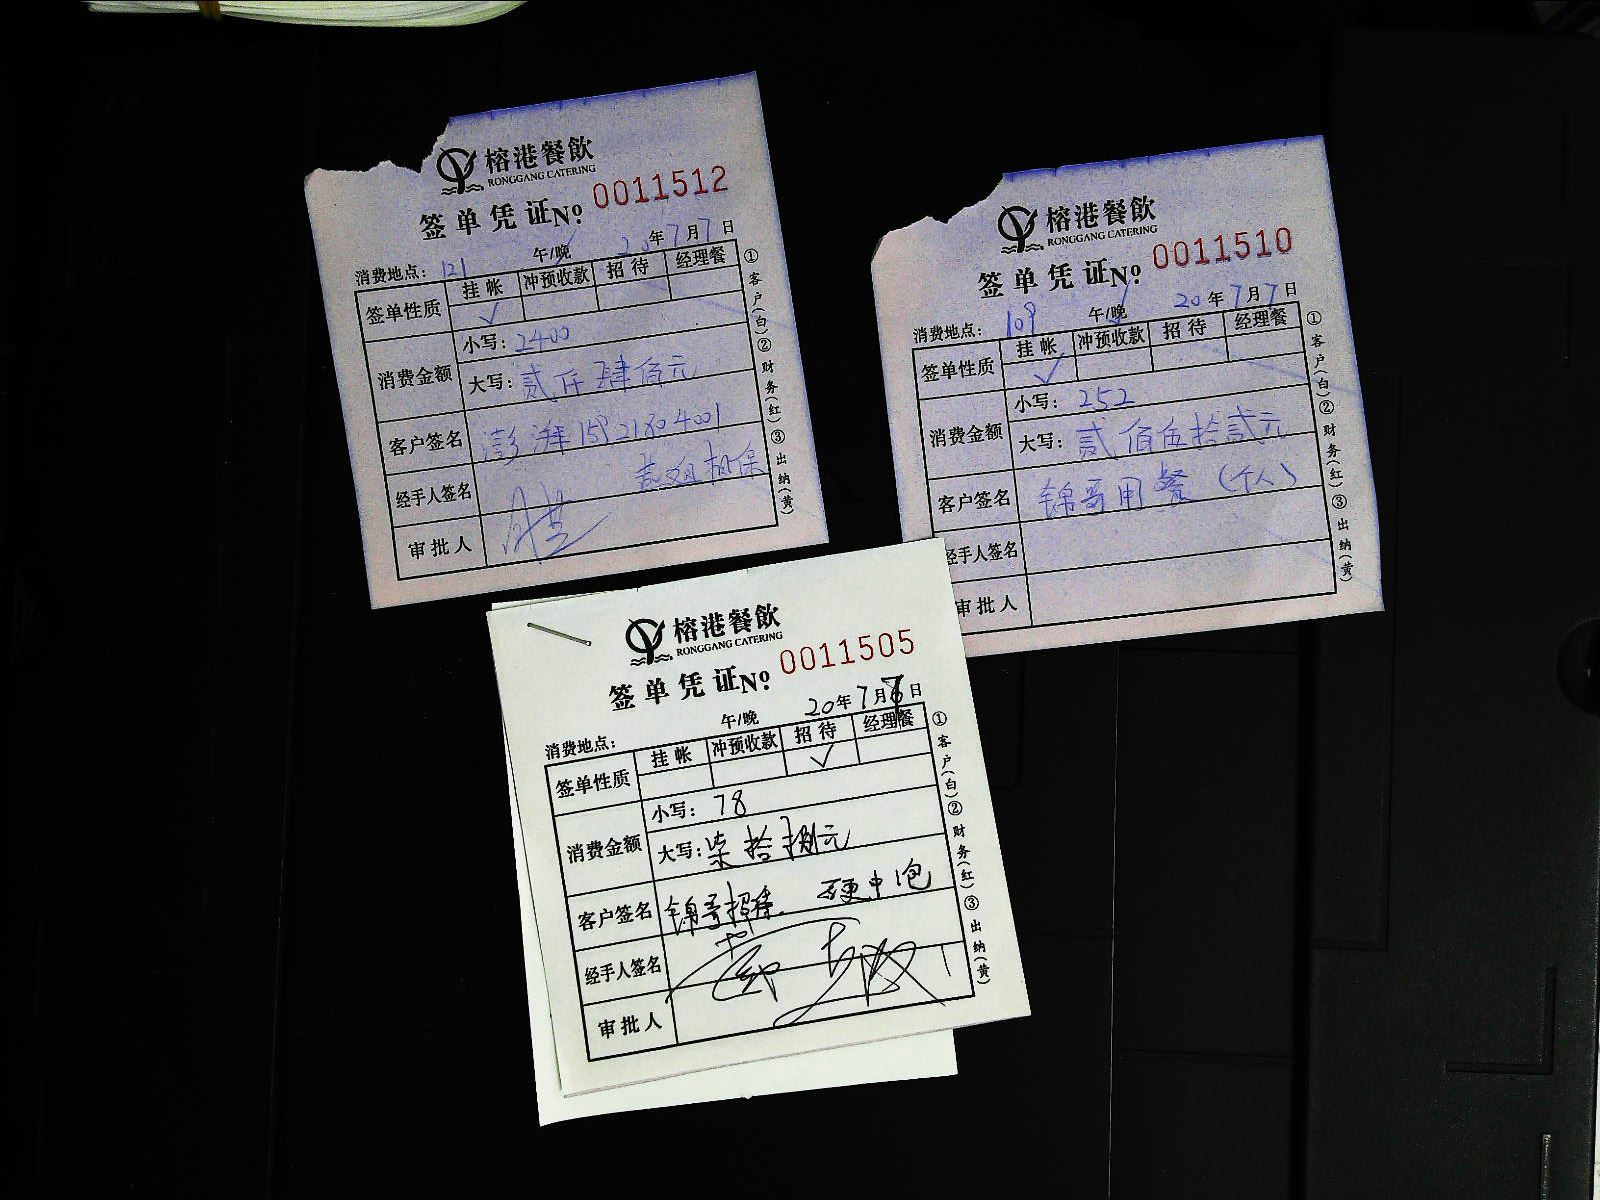 榕港餐飲
RONGGANG CATERING
签单凭证 No. 0011512
消费地点：121 午/晚 20年7月7日
签单性质 挂帐 冲预收款 招待 经理餐
✓
消费金额 小写：2400
大写：贰仟肆佰元
客户签名 澎湃
经手人签名 担保
审批人
①客户(白)②财务(红)③出纳(黄)
榕港餐飲
RONGGANG CATERING
签单凭证 No. 0011510
消费地点：109 午/晚 20年7月7日
签单性质 挂帐 冲预收款 招待 经理餐
✓
消费金额 小写：252
大写：贰佰伍拾贰元
客户签名 锦哥用餐（个人）
经手人签名
审批人
①客户(白)②财务(红)③出纳(黄)
榕港餐飲
RONGGANG CATERING
签单凭证 No. 0011505
午/晚 20年7月7日
消费地点：
签单性质 挂帐 冲预收款 招待 经理餐
✓
消费金额 小写：78
大写：柒拾捌元
客户签名 锦哥招待. 硬中1包
经手人签名
审批人
①客户(白)②财务(红)③出纳(黄)